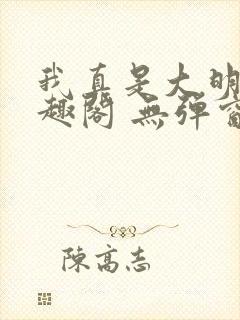 我真是大明
趣阁 無弹
陳高志